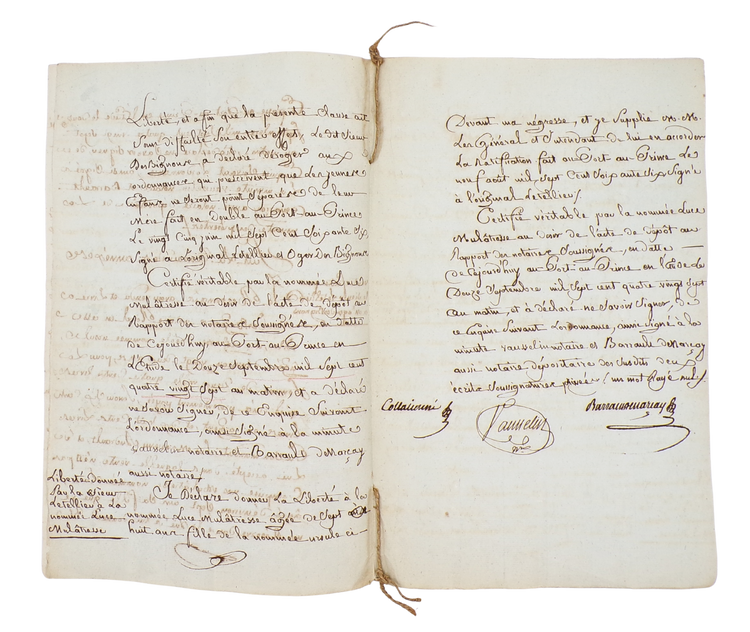 Liberté, et afin que la présente Clause ait
Son entier Effet, Le dit Sieur
DesBignoux a déclaré déroger aux
ordonnances qui prescrivent que Les jeunes
Enfans ne seront point Séparés de leur
Mere fait en Double au Port-au-Prince
Le vingt Cinq juin mil Sept Cent Soixante Six
Signé à Letellier et Oger Des Bignoux
Certifié véritable par la nommée Luce
Mulâtresse au désir de l'acte de dépôt au
Rapport des notaires Soussignés, en datte
de Cejourdhuy au Port-au-Prince en
L'Etude Le Douze Septembre mil Sept cent
quatre vingt Sept au matin, et a déclaré
ne Savoir Signer de ce Enquise Suivant
L'ordonnance, ainsi Signé à la minute
Vausselin notaire et Barrault de Narçay
aussi notaire,
Liberté donnée
Par Le Sieur
Letellier à La
nommée Luce
Mulâtresse
Je Déclare donner La Liberté à la
nommée Luce Mulâtresse âgée de Sept
huit ans fille de la nommée ursule ci
Devant ma négresse, et je Supplie M. M.
Les Général et Intendant de lui en accorder
La Ratification fait au Port-au-Prince Le
neuf août mil Sept Cent Soixante Six Signé
à l'original Letellier /
Certifié véritable par la nommée Luce
Mulâtresse au désir de l'acte de dépôt au
Rapport des notaires Soussignés, en datte
de Cejourdhuy au Port-au-Prince en L'Etude Le
Douze Septembre mil Sept cent quatre vingt Sept
au matin, et a déclaré ne Savoir Signer, de
ce Enquise Suivant Lordonnance, ainsi signé à la
minute Vausselin notaire et Barrault de Narçay
aussi notaire dépositaire des Susdits deux
écrits Soussignatures privées / un mot Rayé nul /.
Collationné
Vausselin
Barrault de Narçay